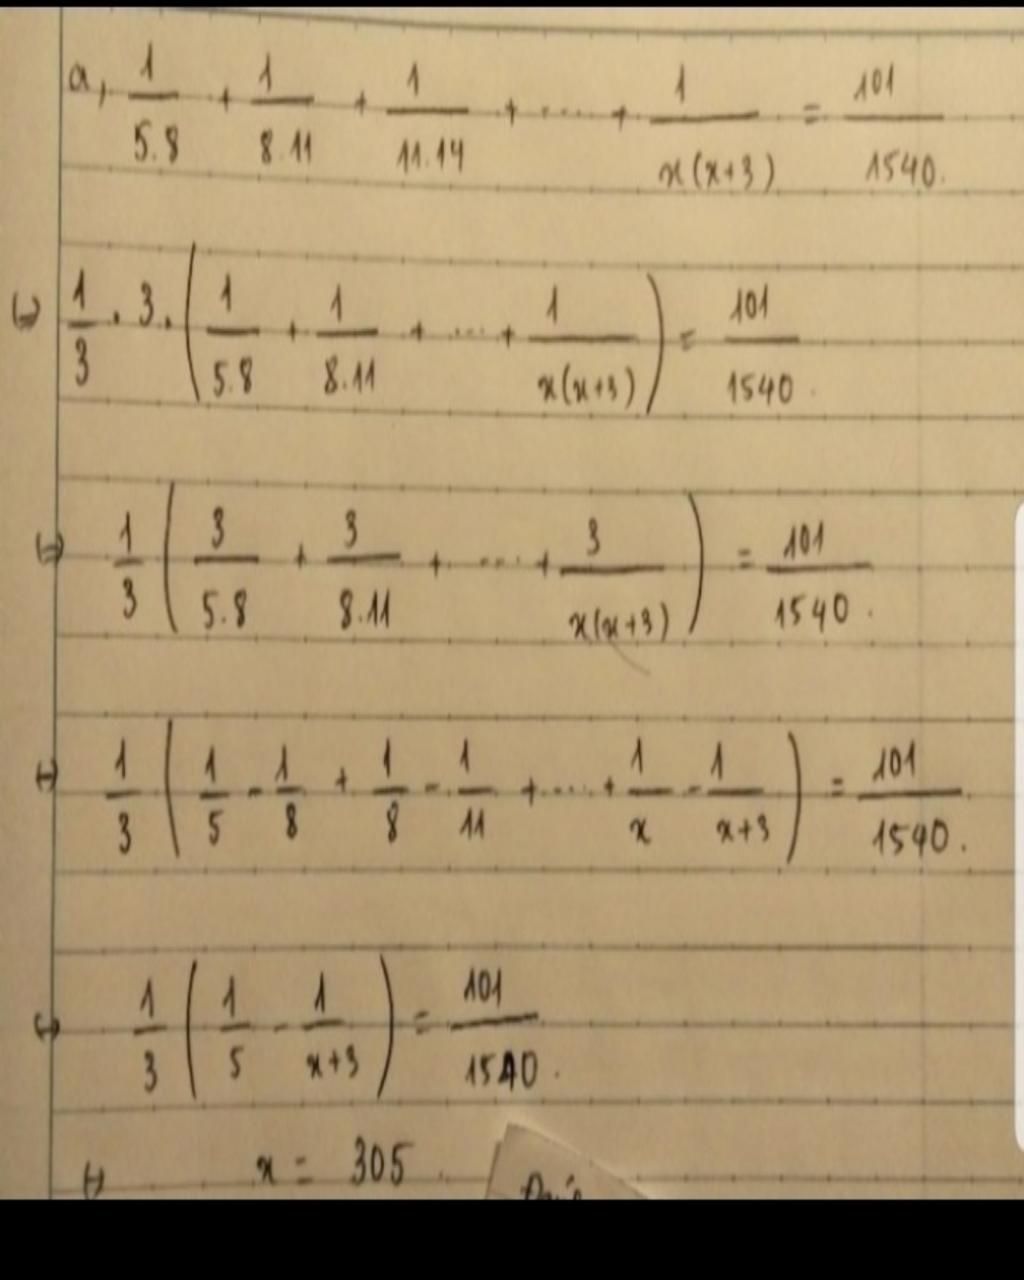 a, 1/5.8 + 1/8.11 + 1/11.14 + ..... + 1/x(x+3) = 101/1540.
(=) 1/3 . 3. (1/5.8 + 1/8.11 + .... + 1/x(x+3)) = 101/1540.
(=) 1/3 (3/5.8 + 3/8.11 + ..... + 3/x(x+3)) = 101/1540.
(=) 1/3 (1/5 - 1/8 + 1/8 - 1/11 + ..... + 1/x - 1/x+3) = 101/1540.
(=) 1/3 (1/5 - 1/x+3) = 101/1540.
(=) x = 305.